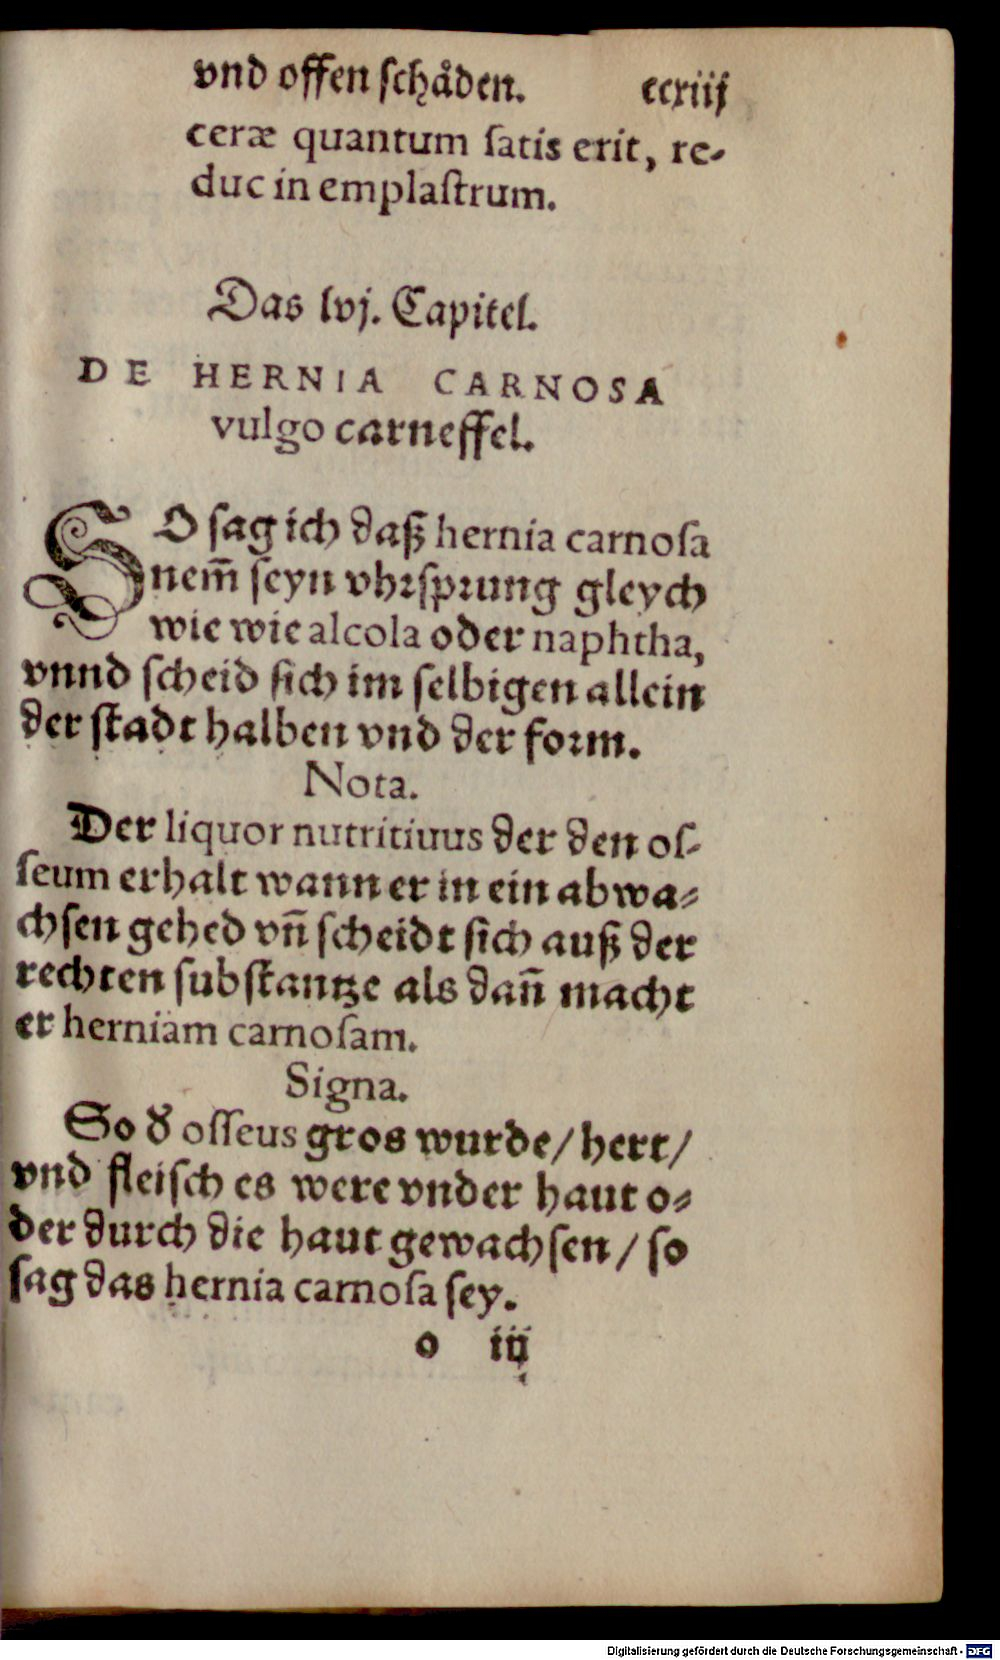 vnd offen schaͤden. ccxiij
ceræ quantum satis erit, re-
duc in emplastrum.
Das lvj. Capitel.
DE HERNIA CARNOSA
vulgo carneffel.
SO sag ich daß hernia carnosa
nem̃ seyn vhrsprung gleych
wie wie alcola oder naphtha,
vnnd scheid sich im selbigen allein
der stadt halben vnd der form.
Nota.
Der liquor nutritiuus der den os-
seum erhalt wann er in ein abwa-
chsen gehed vñ scheidt sich auß der
rechten substantze als dañ macht
er herniam carnosam.
Signa.
So d̕ osseus gros wurde/ hert/
vnd fleisch es were vnder haut o-
der durch die haut gewachsen/ so
sag das hernia carnosa sey.
o iij
Digitalisierung gefördert durch die Deutsche Forschungsgemeinschaft - DFG